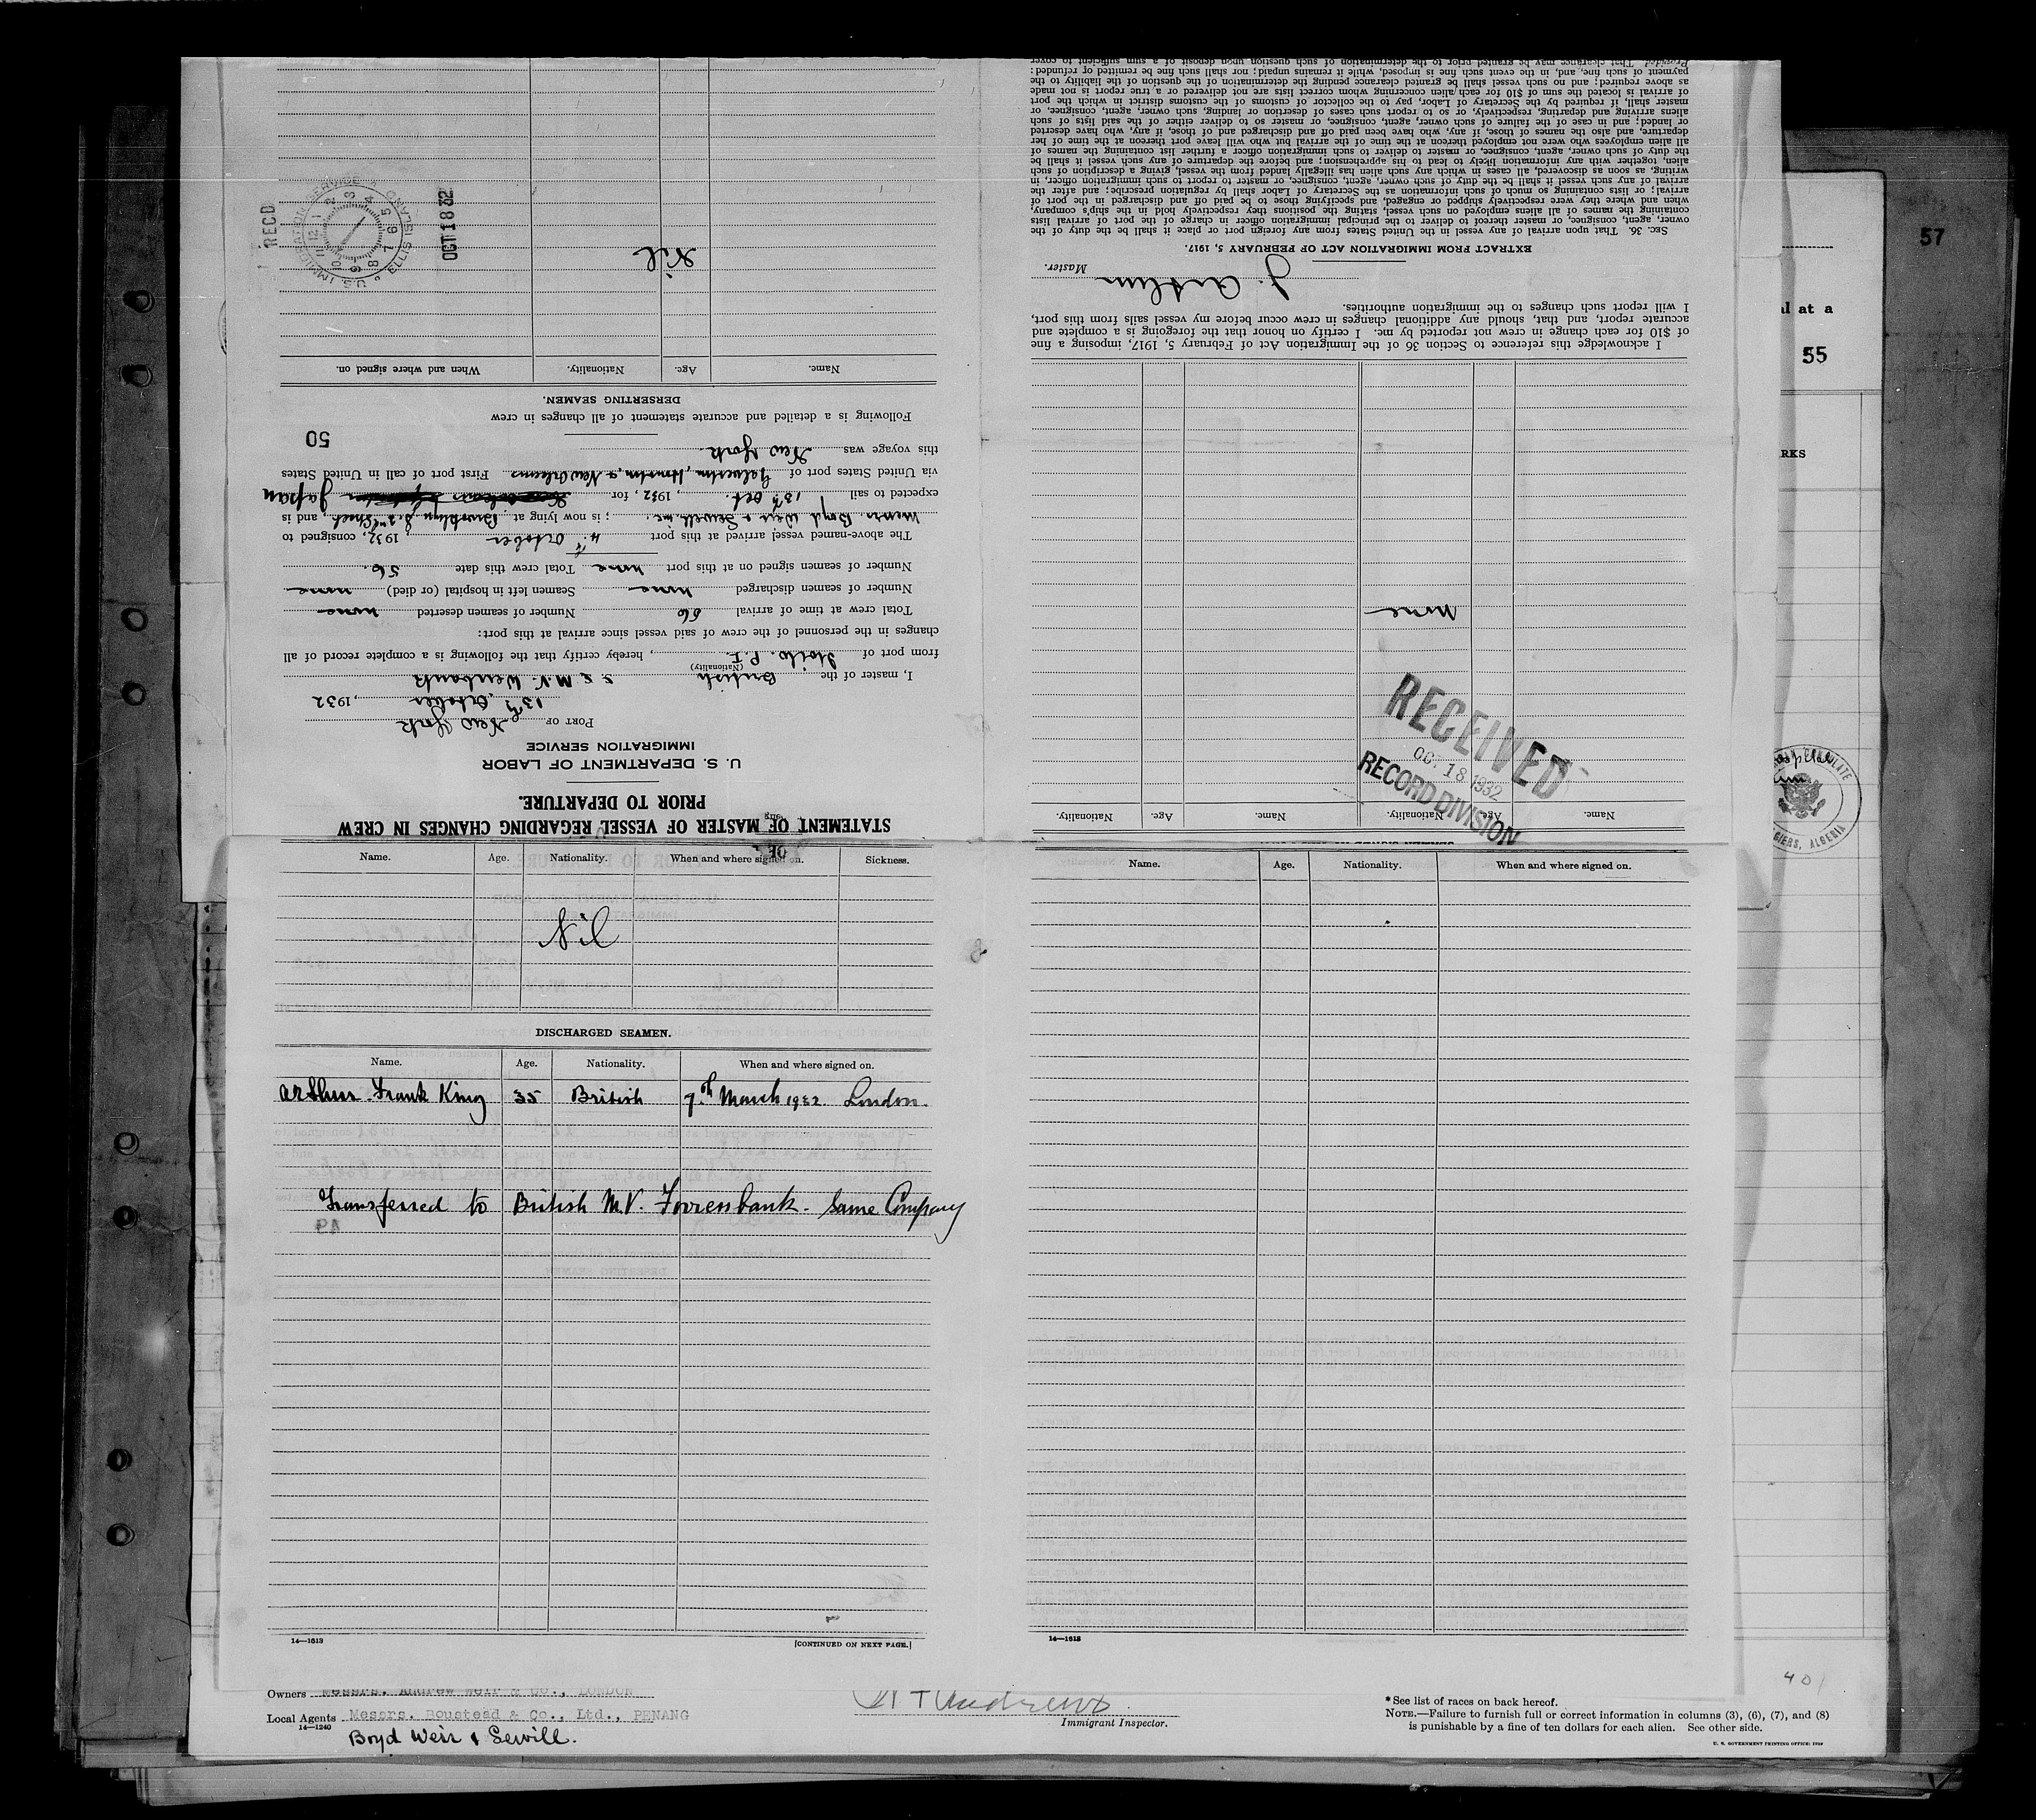 STATEMENT OF MASTER OF VESSEL REGARDING CHANGES IN CREW
PRIOR TO DEPARTURE.
U. S. DEPARTMENT OF LABOR
IMMIGRATION SERVICE
PORT OF New York
13th October, 1932
I, master of the British S.S. M.V. Weirbank
(Nationality)
from port of Iloilo. P.I., hereby certify that the following is a complete record of all
changes in the personnel of the crew of said vessel since arrival at this port:
Total crew at time of arrival 56 Number of seamen deserted none
Number of seamen discharged none Seamen left in hospital (or died) none
Number of seamen signed on at this port none Total crew this date 56.
The above-named vessel arrived at this port 4th October, 1932, consigned to
Messrs. Boyd Weir & Sewell inc.; is now lying at Brooklyn 32nd Street, and is
expected to sail 13th Oct., 1932, for Japan
via United States port of Galveston, Houston, & New Orleans First port of call in United States
this voyage was New York
50
Following is a detailed and accurate statement of all changes in crew
DERSERTING SEAMEN.
Name. Age. Nationality. When and where signed on.
Nil
RECD
U.S. IMMIGRATION SERVICE ELLIS ISLAND
1 2 3 4 5 6 7 8 9 10 11 12
OCT 18 32
Name. Age. Nationality. Name. Age. Nationality.
RECEIVED
OCT 18 1932
RECORD DIVISION
None
I acknowledge this reference to Section 36 of the Immigration Act of February 5, 1917, imposing a fine
of $10 for each change in crew not reported by me. I certify on honor that the foregoing is a complete and
accurate report, and that, should any additional changes in crew occur before my vessel sails from this port,
I will report such changes to the immigration authorities.
Master.
EXTRACT FROM IMMIGRATION ACT OF FEBRUARY 5, 1917.
SEC. 36. That upon arrival of any vessel in the United States from any foreign port or place it shall be the duty of the
owner, agent, consignee, or master thereof to deliver to the principal immigration officer in charge of the port of arrival lists
containing the names of all aliens employed on such vessel, stating the positions they respectively hold in the ship's company,
when and where they were respectively shipped or engaged, and specifying those to be paid off and discharged in the port of
arrival; or lists containing so much of such information as the Secretary of Labor shall by regulation prescribe; and after the
arrival of any such vessel it shall be the duty of such owner, agent, consignee, or master to report to such immigration officer, in
writing, as soon as discovered, all cases in which any such alien has illegally landed from the vessel, giving a description of such
alien, together with any information likely to lead to his apprehension; and before the departure of any such vessel it shall be
the duty of such owner, agent, consignee, or master to deliver to such immigration officer a further list containing the names of
all alien employees who were not employed thereon at the time of the arrival but who will leave port thereon at the time of her
departure, and also the names of those, if any, who have been paid off and discharged and of those, if any, who have deserted
or landed; and in case of the failure of such owner, agent, consignee, or master so to deliver either of the said lists of such
aliens arriving and departing, respectively, or so to report such cases of desertion or landing, such owner, agent, consignee, or
master shall, if required by the Secretary of Labor, pay to the collector of customs of the customs district in which the port
of arrival is located the sum of $10 for each alien concerning whom correct lists are not delivered or a true report is not made
as above required; and no such vessel shall be granted clearance pending the determination of the question of the liability to the
payment of such fine, and, in the event such fine is imposed, while it remains unpaid; nor shall such fine be remitted or refunded:
Provided That clearance may be granted prior to the determination of such question upon deposit of a sum sufficient to cover
57
al at a
55
RKS
CONSULATE
ALGIERS, ALGERIA
Name. Age. Nationality. When and where signed on. Sickness.
Nil
DISCHARGED SEAMEN.
Name. Age. Nationality. When and where signed on.
Arthur Frank King 35 British 7th March 1932 London.
Transferred to British M.V. Forresbank. Same Company
49
14—1613
[CONTINUED ON NEXT PAGE.]
Name. Age. Nationality. When and where signed on.
14—1613
Owners Messrs. Andrew Weir & Co., LONDON
Local Agents Messrs. Boustead & Co., Ltd., PENANG
14—1240
Boyd Weir & Sewill.
Andrews
Immigrant Inspector.
401
* See list of races on back hereof.
NOTE.—Failure to furnish full or correct information in columns (3), (6), (7), and (8)
is punishable by a fine of ten dollars for each alien. See other side.
U. S. GOVERNMENT PRINTING OFFICE: 1929